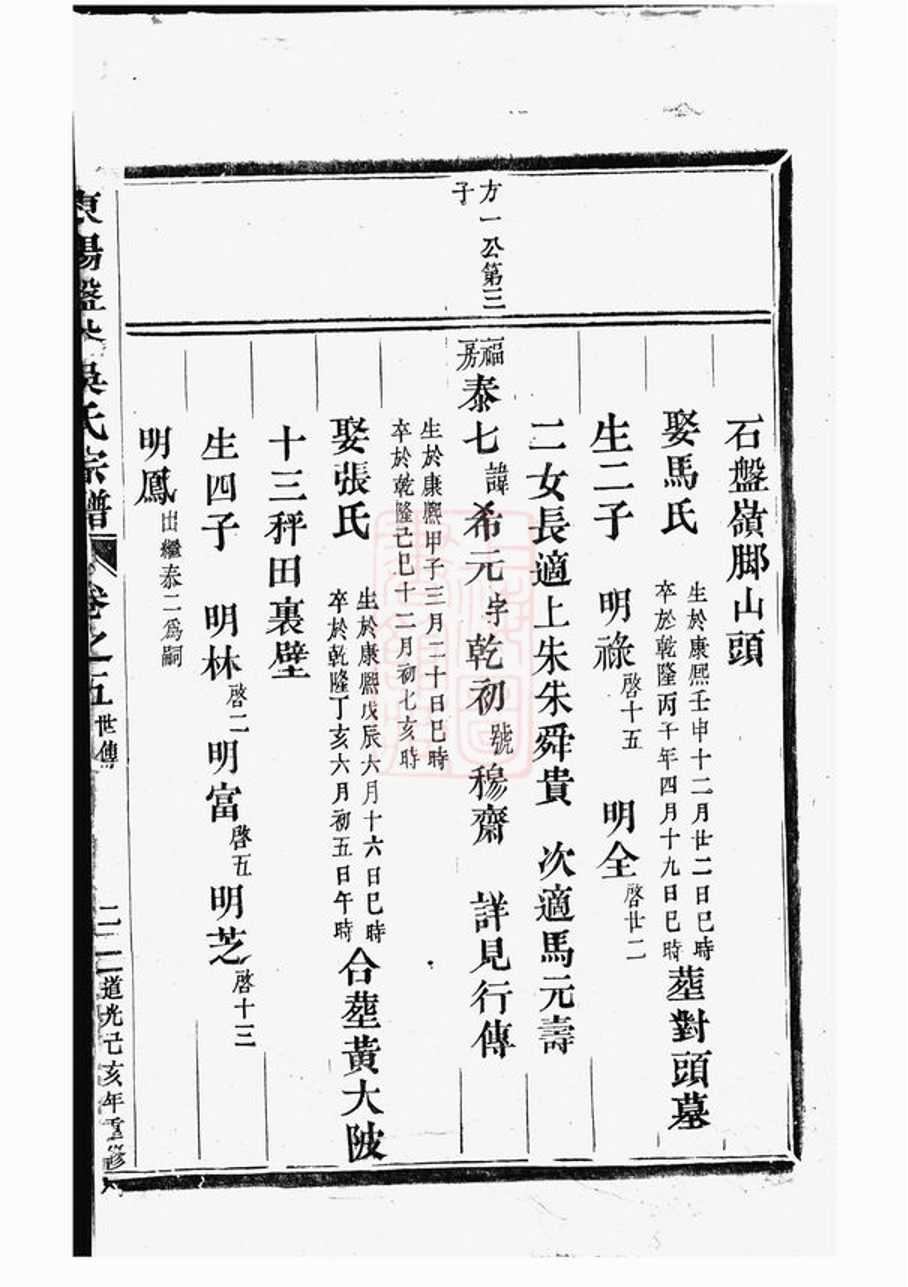 石盤嶺脚山頭
娶馬氏
生於康熈壬申十二月廿二日巳時
卒於乾隆丙子年四月十九日巳時
葬對頭墓
生二子 明祿啓十五 明全啓廿二
二女長適上朱朱舜貴 次適馬元壽
方一公第三
子
福
房
泰七諱希元字乾初號穆齋 詳見行傳
生於康熈甲子三月二十日巳時
卒於乾隆己巳十二月初七亥時
娶張氏
生於康熈戊辰六月十六日巳時
卒於乾隆丁亥六月初五日午時
合葬黃大陂
十三秤田裏壁
生四子 明林啓二明富啓五明芝啓十三
明鳳出繼泰二爲嗣
東陽盤 吳氏宗譜 卷之五世傳 道光己亥年重修